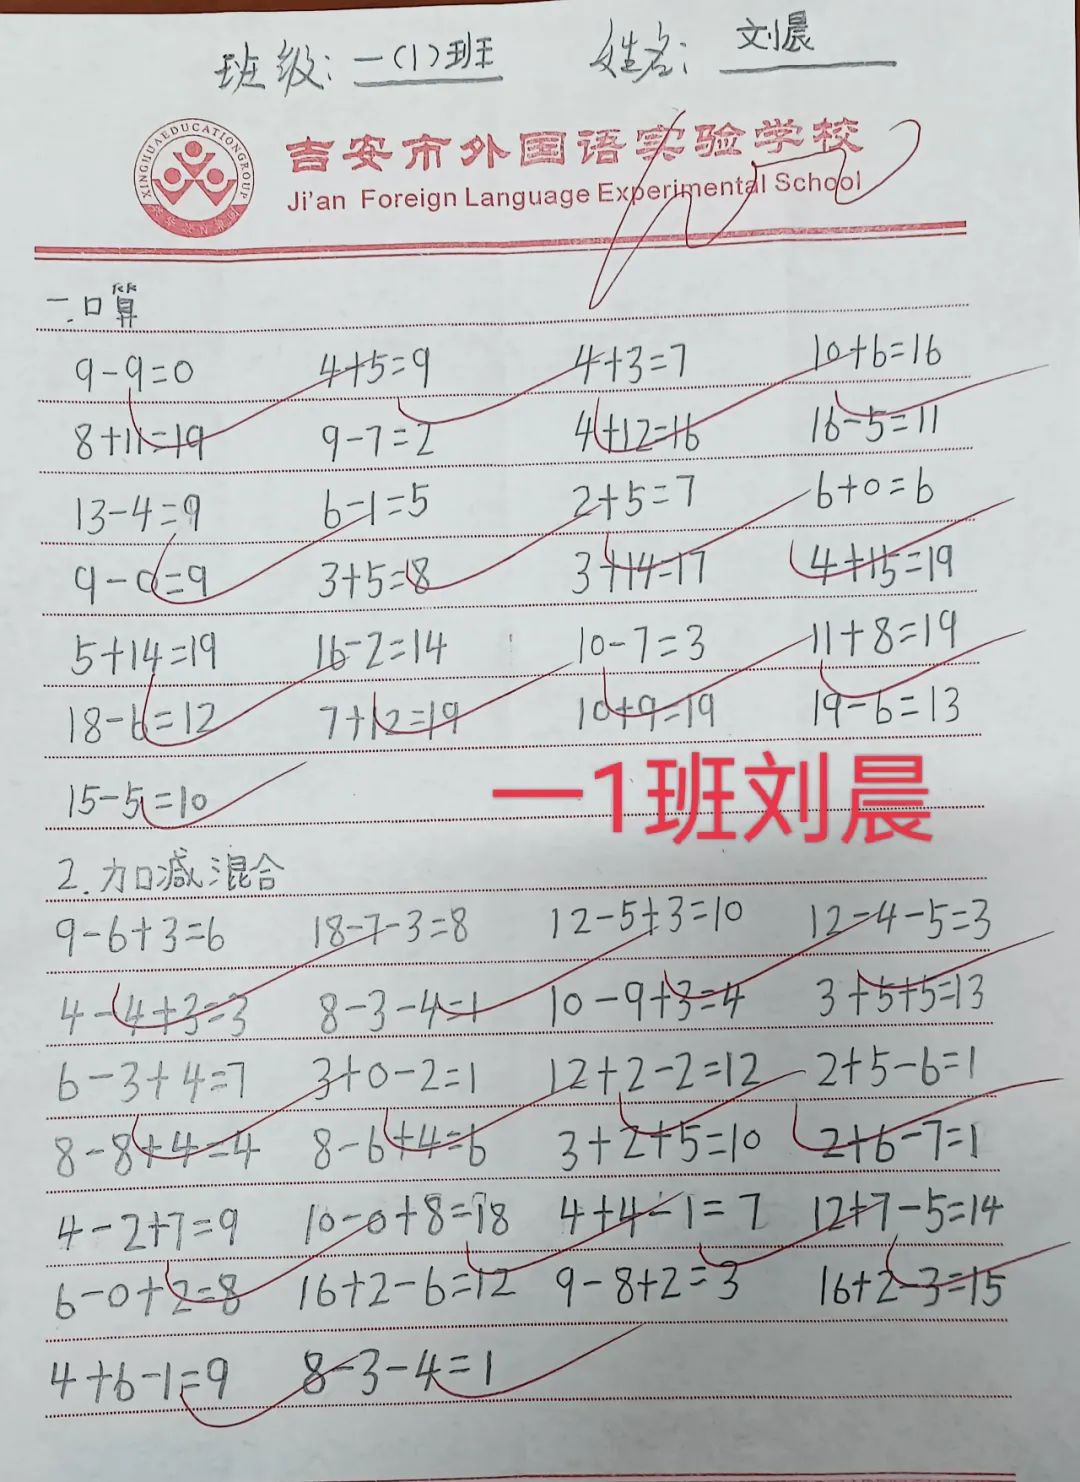 班级: 一(1)班 姓名: 刘晨
XINGHUAEDUCATIONGROUP
吉安市外国语实验学校
Ji'an Foreign Language Experimental School
一.口算
9-9=0 4+5=9 4+3=7 10+6=16
8+11=19 9-7=2 4+12=16 16-5=11
13-4=9 6-1=5 2+5=7 6+0=6
9-0=9 3+5=8 3+14=17 4+15=19
5+14=19 16-2=14 10-7=3 11+8=19
18-6=12 7+12=19 10+9=19 19-6=13
15-5=10
一1班刘晨
2.加减混合
9-6+3=6 18-7-3=8 12-5+3=10 12-4-5=3
4-4+3=3 8-3-4=1 10-9+3=4 3+5+5=13
6-3+4=7 3+0-2=1 12+2-2=12 2+5-6=1
8-8+4=4 8-6+4=6 3+2+5=10 2+6-7=1
4-2+7=9 10-0+8=18 4+4-1=7 12+7-5=14
6-0+2=8 16+2-6=12 9-8+2=3 16+2-3=15
4+6-1=9 8-3-4=1